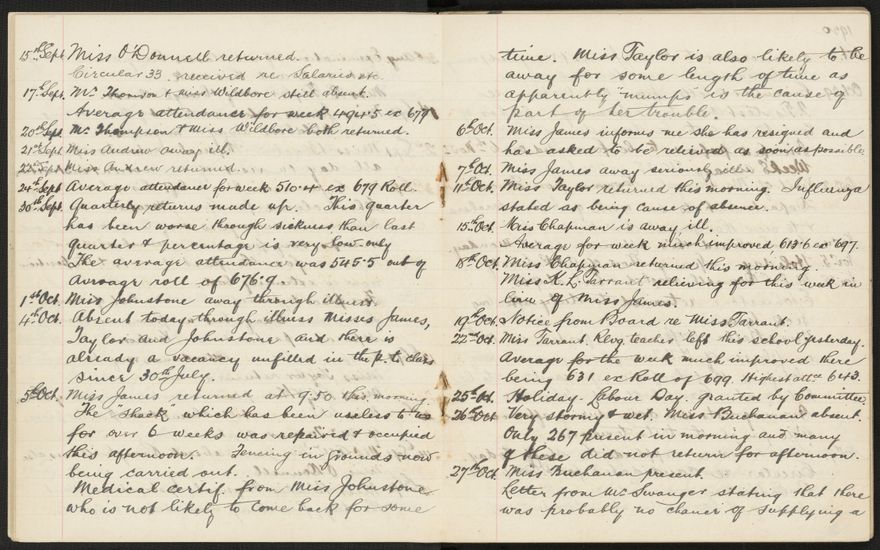 15th Sept. Miss O'Donnell returned.
Circular 33 received re Salaries etc.
17th Sept. Mr Thomson & Miss Wildbore still absent.
Average attendance for week 494.5 ex 679
20th Sept Mr Thompson & Miss Wildbore both returned.
21st Sept Miss Andrew away ill.
22nd Sept Miss Andrew returned.
24th Sept Average attendance for week 510.4 ex 679 Roll.
30th Sept. Quarterly returns made up. This quarter
has been worse through sickness than last
quarter & percentage is very low only
The average attendance was 545.5 out of
average roll of 676.9.
1st Oct. Miss Johnstone away through illness.
4th Oct. Absent today through illness Misses James,
Taylor and Johnstone and there is
already a vacancy unfilled in the p.t. class
since 30th July.
5th Oct. Miss James returned at 9.50 this morning
The "shack" which has been useless to us
for over 6 weeks was repaired & occupied
this afternoon. Fencing in grounds now
being carried out.
Medical certif. from Miss Johnstone
who is not likely to come back for some
1920
time. Miss Taylor is also likely to be
away for some length of time as
apparently "mumps" is the cause of
part of her trouble.
6th Oct. Miss James informs me she has resigned and
has asked to be relieved as soon as possible.
7th Oct. Miss James away seriously ill.
11th Oct. Miss Taylor returned this morning. Influenza
stated as being cause of absence.
15th Oct. Miss Chapman is away ill.
Average for week much improved 613.6 ex 697.
18th Oct. Miss Chapman returned this morning.
Miss K. L. Tarrant relieving for this week in
lieu of Miss James.
19th Oct. Notice from Board re Miss Tarrant.
22nd Oct. Miss Tarrant Relvg. teacher left this school yesterday.
Average for the week much improved there
being 631 ex Roll of 699. Highest attce 643.
25th Oct. Holiday. Labour Day. granted by Committee.
26th Oct Very stormy & wet. Miss Buchanan absent.
Only 267 present in morning and many
of these did not return for afternoon.
27th Oct. Miss Buchanan present.
Letter from Mr Swanger stating that there
was probably no chance of supplying a